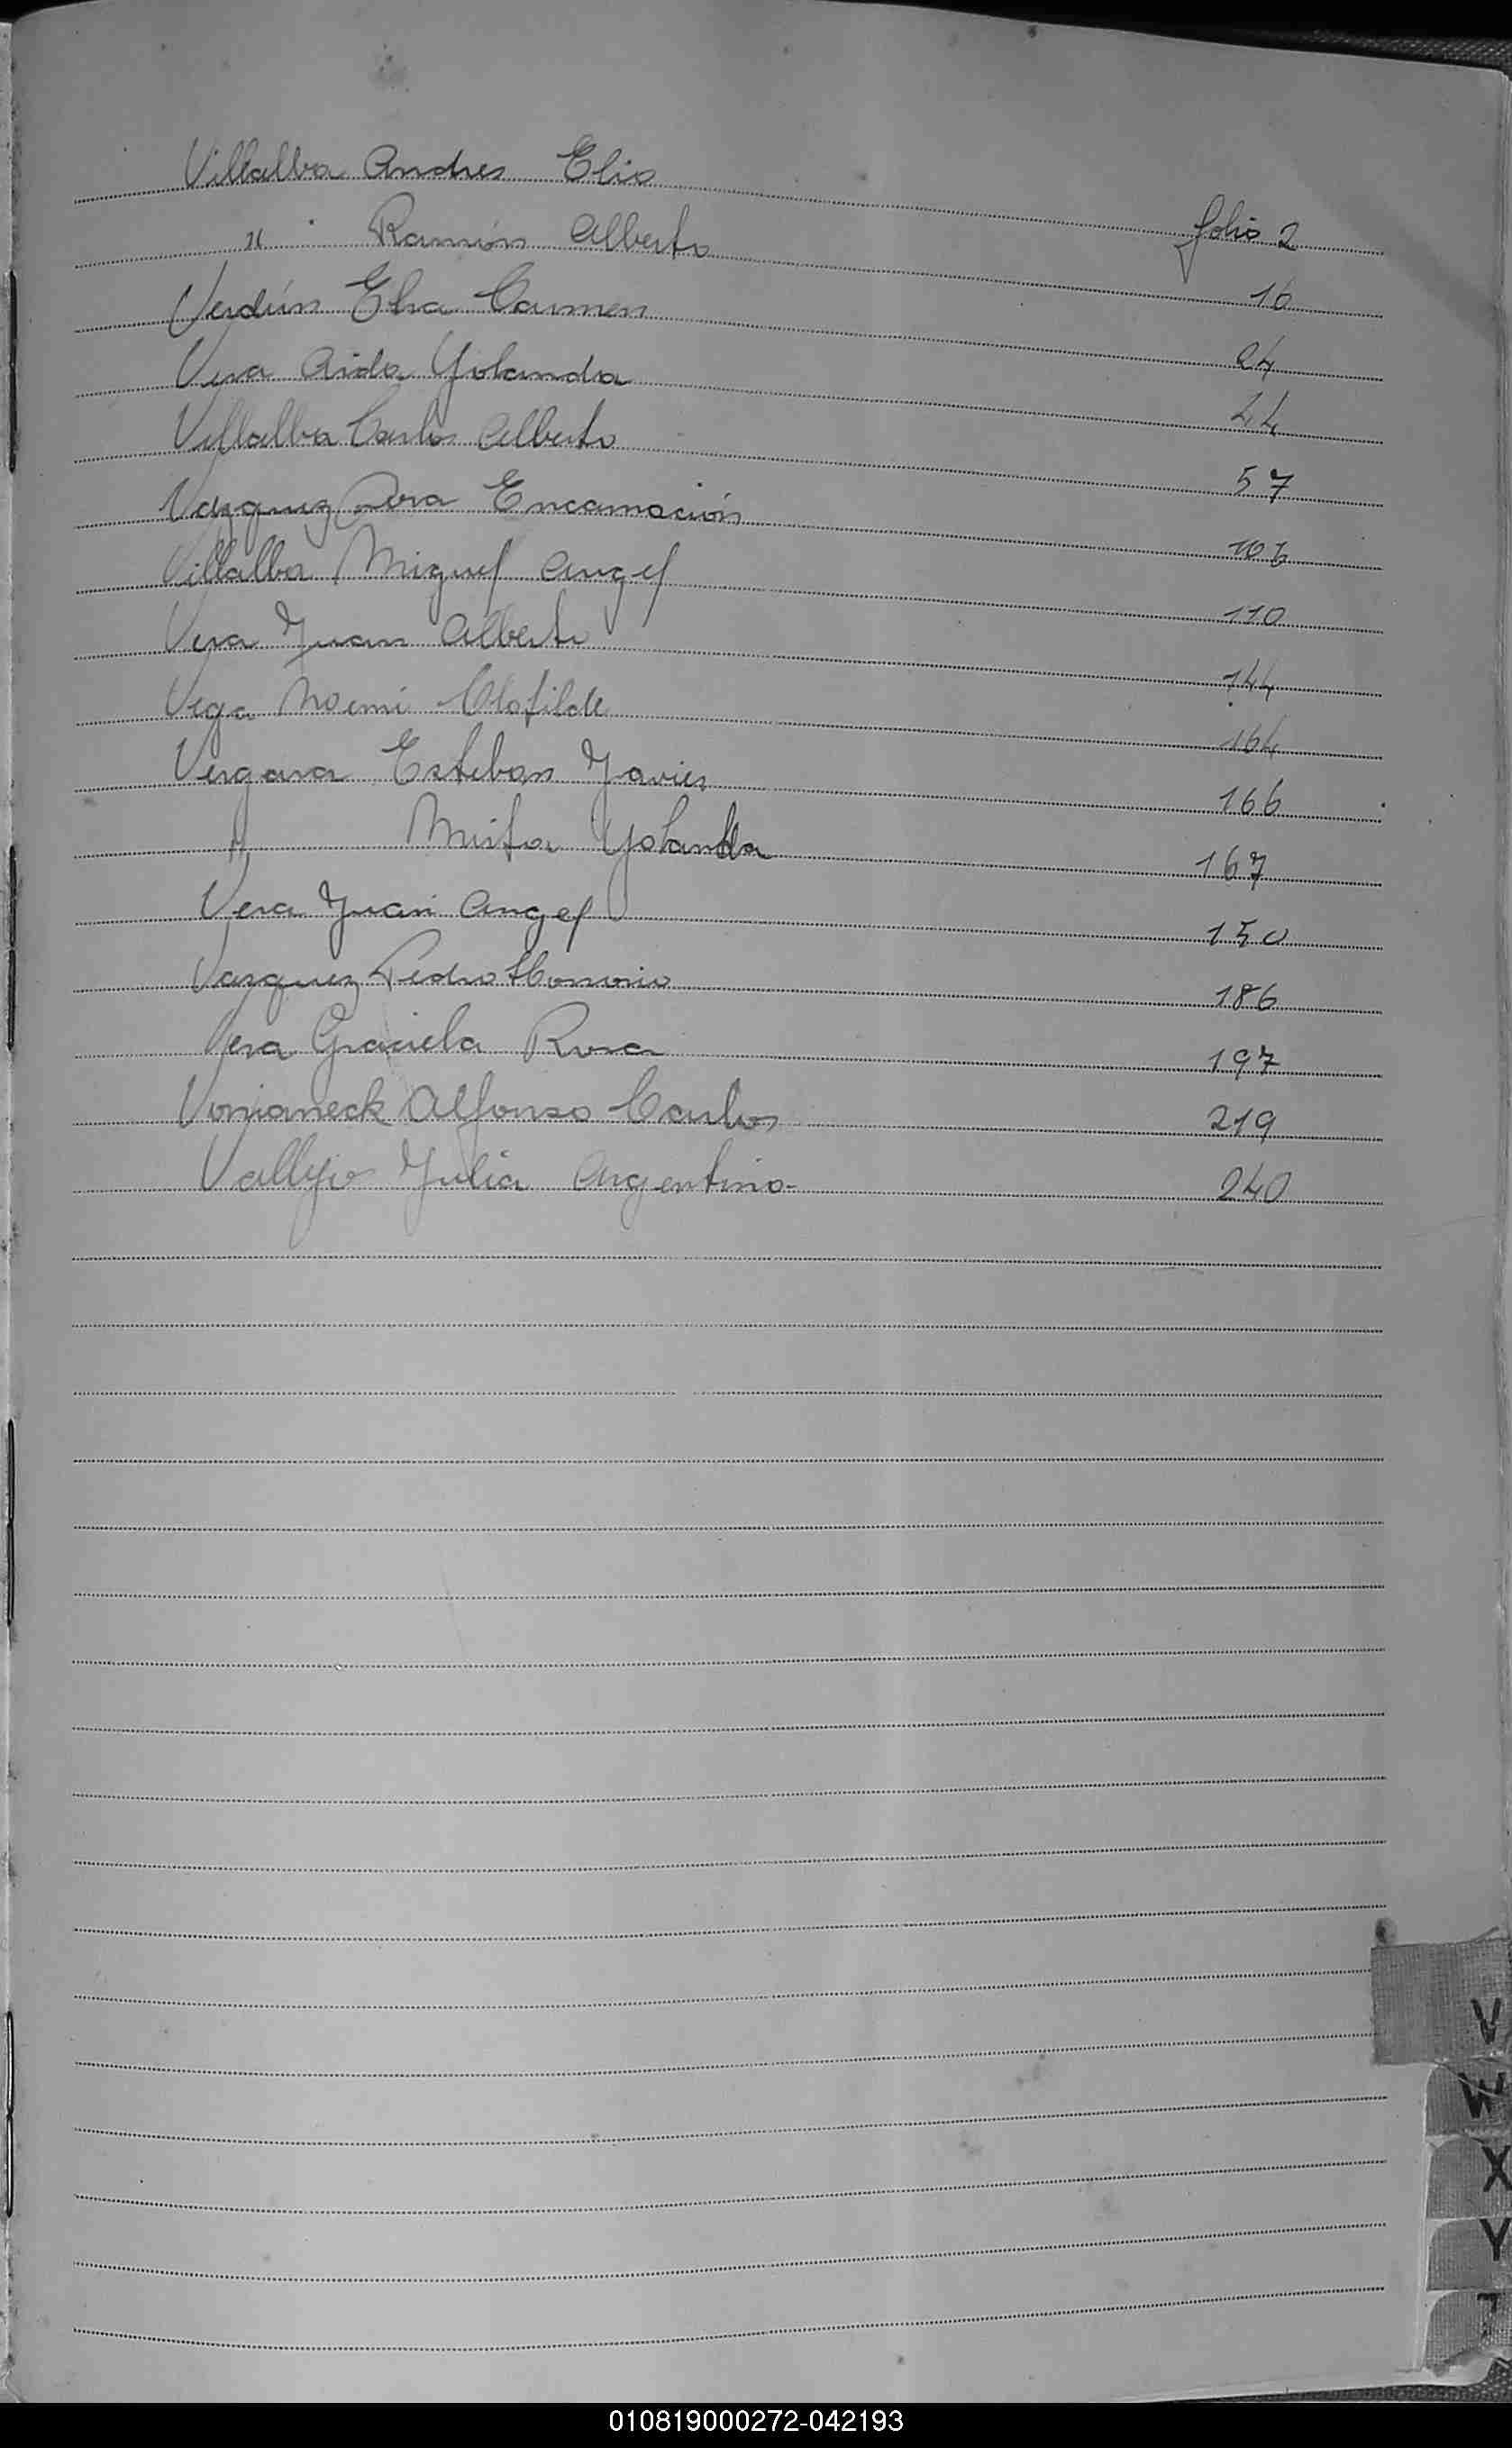 Villalba Andres Elio folio 2
" Ramón Alberto 16
Verdún Elsa Carmen 24
Vera Aida Yolanda 44
Villalba Carlos Alberto 57
Vazquez Encarnación 106
Villalba Miguel Angel 110
Vera Juan Alberto 144
Vega Noemi Clotilde 164
Vergara Esteban Javier 166
" Mirta Yolanda 167
Vera Juan Angel 150
Vazquez Pedro Honorio 186
Vera Graciela Rosa 197
Vonianeck Alfonso Carlos 219
Vallejo Julia Argentina 240
V
W
X
Y
Z
010819000272-042193